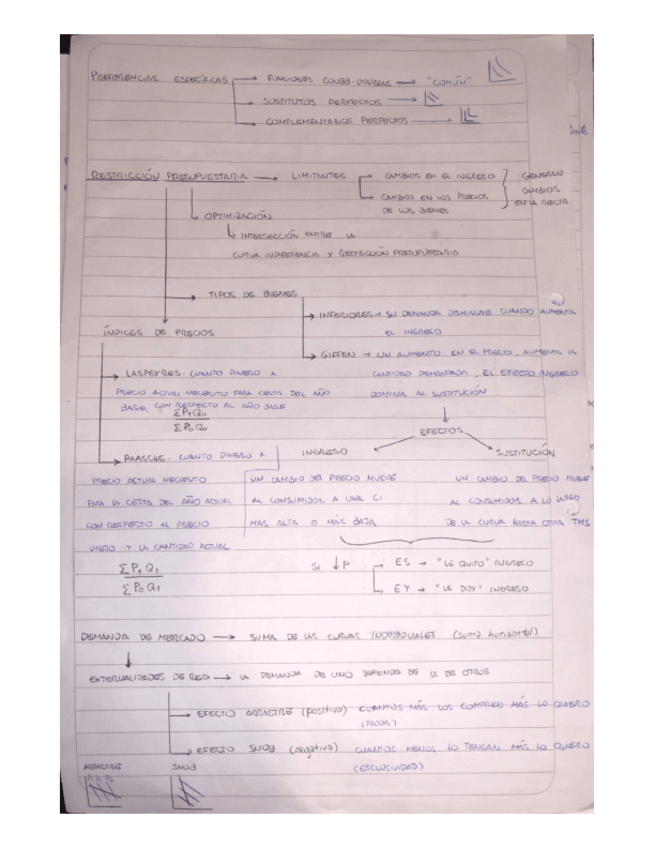 PREFERENCIAS ESPECÍFICAS → FUNCIONES COBB-DOUGLAS → "COMÚN"
→ SUSTITUTOS PERFECTOS →
→ COMPLEMENTARIOS PERFECTOS →
RESTRICCIÓN PRESUPUESTARIA → LIMITANTES → CAMBIOS EN EL INGRESO } GENERAN
→ CAMBIOS EN LOS PRECIOS CAMBIOS
DE LOS BIENES EN LA RECTA
OPTIMIZACIÓN
INTERSECCIÓN ENTRE LA
CURVA INDIFERENCIA Y RESTRICCIÓN PRESUPUESTARIA
→ TIPOS DE BIENES
→ INFERIORES → SU DEMANDA DISMINUYE CUANDO AUMENTA
EL INGRESO
ÍNDICES DE PRECIOS
→ GIFFEN → UN AUMENTO EN EL PRECIO, AUMENTA LA
CANTIDAD DEMANDADA, EL EFECTO INGRESO
DOMINA AL SUSTITUCIÓN
→ LASPEYRES: CUANTO DINERO A
PRECIO ACTUAL NECESITO PARA CESTA DEL AÑO
BASE, CON RESPECTO AL AÑO BASE
ΣP₁Q₀
ΣP₀Q₀
EFECTOS
INGRESO SUSTITUCIÓN
→ PAASCHE: CUANTO DINERO A
PRECIO ACTUAL NECESITO
PARA LA CESTA DEL AÑO ACTUAL
CON RESPECTO AL PRECIO
VIEJO Y LA CANTIDAD ACTUAL
ΣP₁Q₁
ΣP₀Q₁
UN CAMBIO DEL PRECIO MUEVE
AL CONSUMIDOR A UNA CI
MAS ALTA O MÁS BAJA
UN CAMBIO DEL PRECIO MUEVE
AL CONSUMIDOR A LO LARGO
DE LA CURVA HASTA OTRA TMS
SI ↓P → ES → "LE QUITO" INGRESO
→ EY → "LE DOY" INGRESO
DEMANDA DE MERCADO → SUMA DE LAS CURVAS INDIVIDUALES (suma horizontal)
EXTERNALIDADES DE RED → LA DEMANDA DE UNO DEPENDE DE LA DE OTROS
→ EFECTO ARRASTRE (positiva) CUANTOS MÁS LOS COMPREN MÁS LO QUIERO
(MODA)
→ EFECTO SNOB (negativa) CUANTOS MENOS LO TENGAN MÁS LO QUIERO
(EXCLUSIVIDAD)
ARRASTRE SNOB